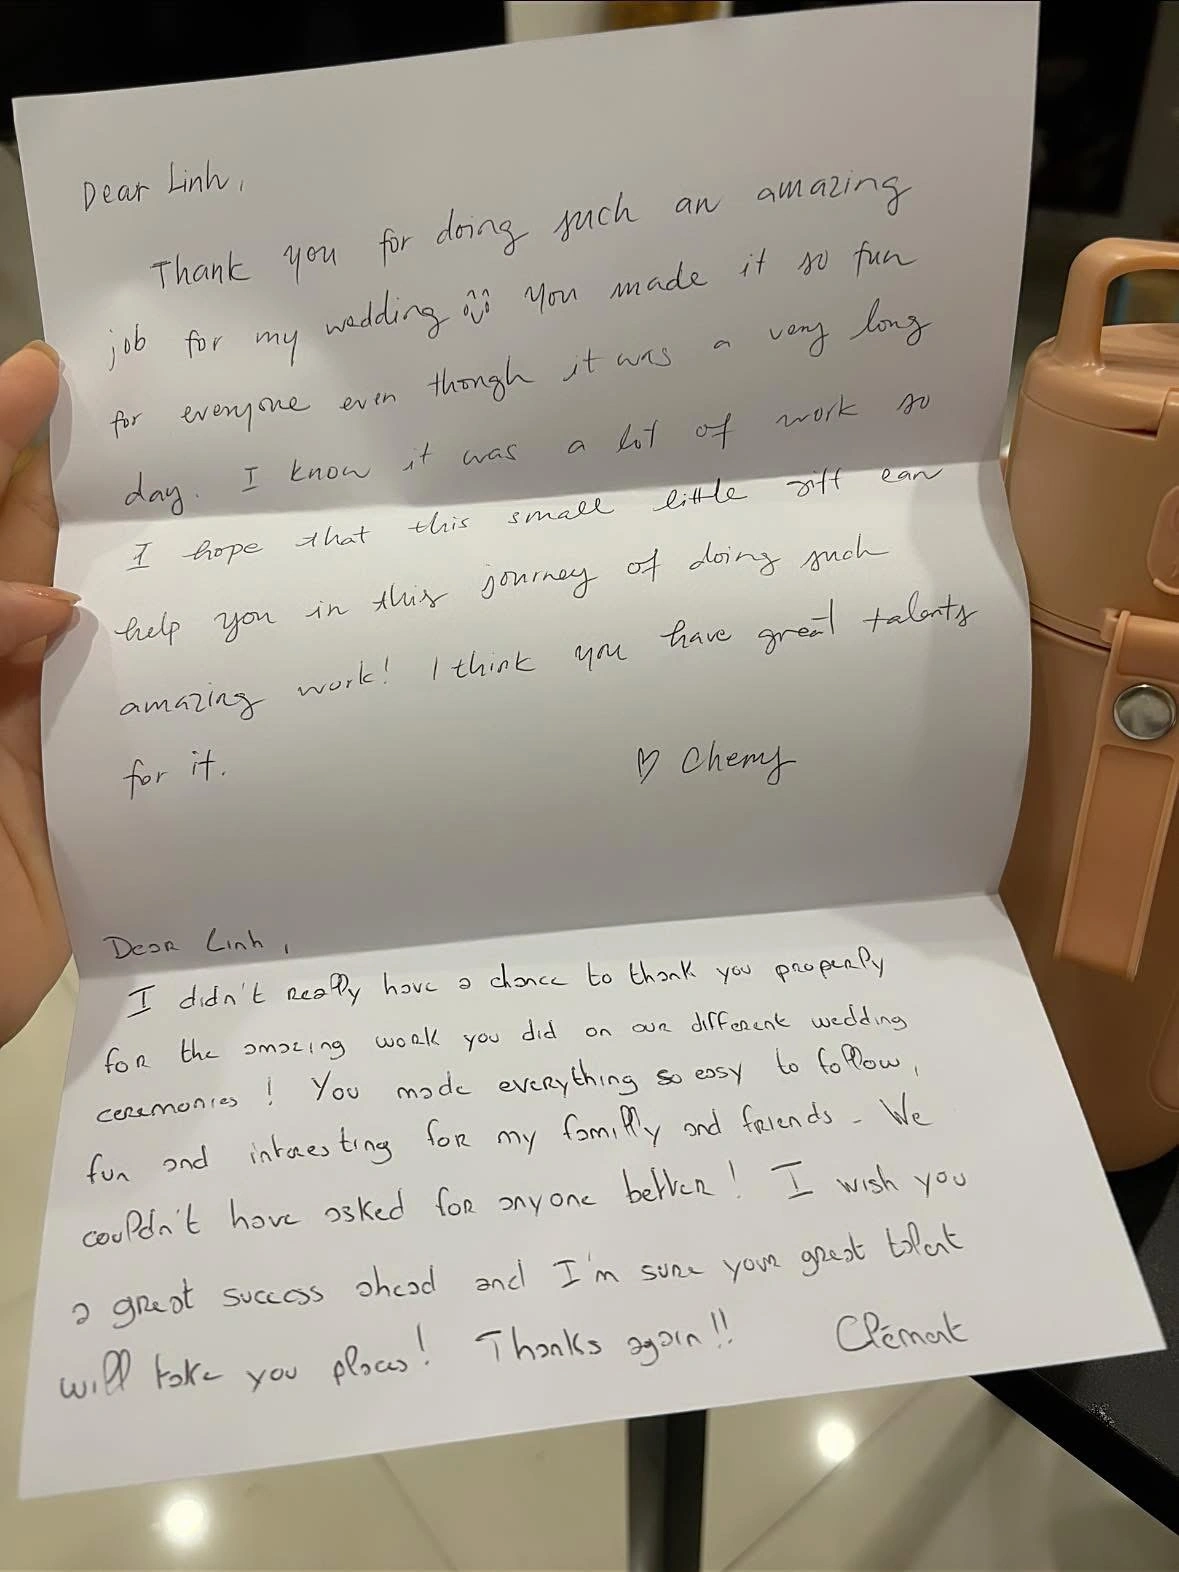 Dear Linh,
Thank you for doing such an amazing
job for my wedding You made it so fun
for everyone even though it was a very long
day. I know it was a lot of work so
I hope that this small little gift can
help you in this journey of doing such
amazing work! I think you have great talents
for it.
♡ Cherry
Dear Linh,
I didn't really have a chance to thank you properly
for the amazing work you did on our different wedding
ceremonies! You made everything so easy to follow,
fun and interesting for my familly and friends - We
couldn't have asked for anyone better! I wish you
a great success ahead and I'm sure your great talent
will take you places! Thanks again!!
Clément